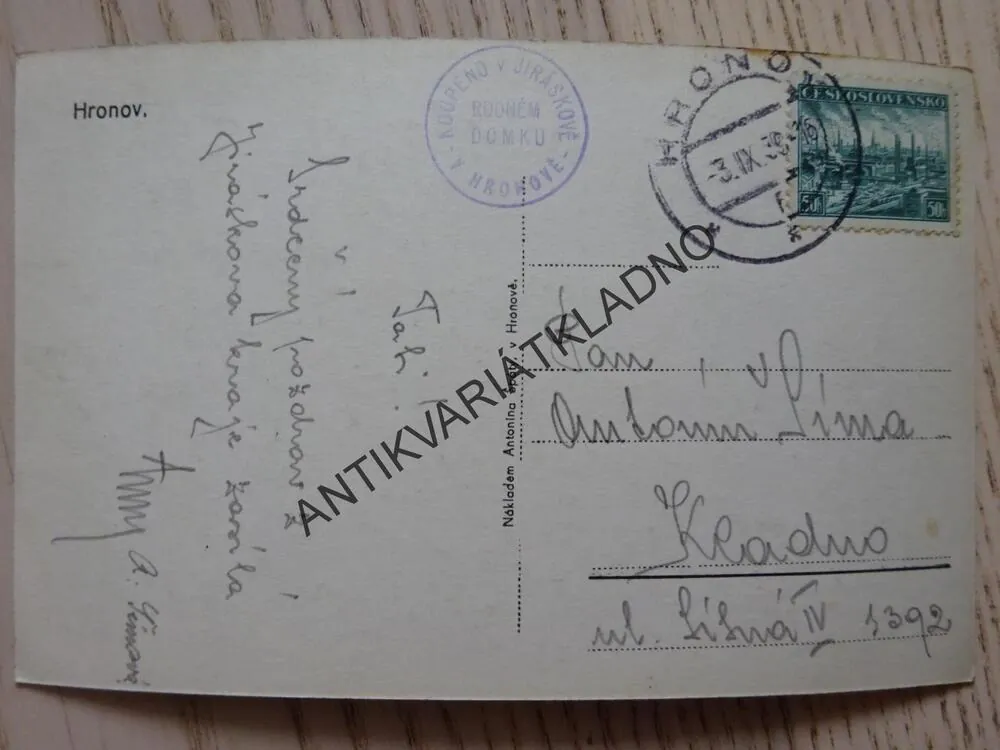 Hronov.
KOUPENO V JIRÁSKOVĚ
RODNÉM
DOMKU
V HRONOVĚ
HRONOV
-3.IX.38
ČESKOSLOVENSKO
50h 50h
Táti!
Srdečný pozdrav z
Jiráskova kraje zasílá
A. Šímová
Nákladem Antonína v Hronově.
Pan
Antonín Šíma
Kladno
ul. Líbná IV 1392
ANTIKVARIÁTKLADNO